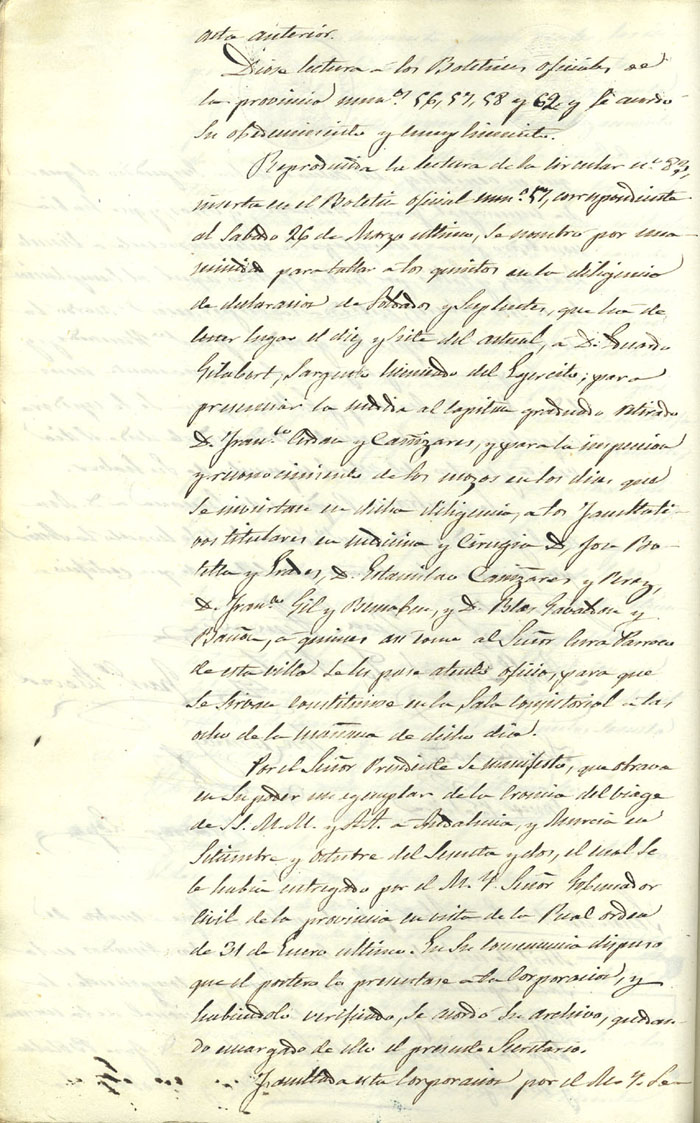 acta anterior.
Diose lectura a los Boletines oficiales de
la provincia num.s 56, 57, 58 y 62 y se acordó
su obedecimiento y cumplimiento.
Reproducida la lectura de la circular n.º 83,
inserta en el Boletin oficial num.º 57, correspondiente
al Sabado 26 de Marzo ultimo, se nombró por una-
nimidad para tallar a los quintos en la diligencia
de declaracion de Soldados y Suplentes, que ha de
tener lugar el diez y siete del actual, a D. Eduardo
Gilabert, Sargento licenciado del Egercito; para
presenciar la medida al Capitan graduado retirado
D. Fran.co Cerdan y Cañizares, y para la inspeccion
y reconocimiento de los mozos en los dias que
se inviertan en dicha diligencia, a los Facultati-
vos titulares en medicina y Cirugia D. Jose Bo-
tella y Grades, D. Estanislao Cañizares y Perez,
D. Fran.co Gil y Benaben, y D. Blas Gabaldon y
Bañon, a quienes asi como al Señor Cura Parroco
de esta villa se les pase atento oficio, para que
se sirvan constituirse en la Sala Consistorial a las
ocho de la mañana de dicho dia.
Por el Señor Presidente se manifestó, que obrava
en su poder un egemplar de la Cronica del viage
de SS. M.M. y AA. a Andalucia, y Murcia en
Setiembre y octubre del Sesenta y dos, el cual se
le habia entregado por el M. Y. Señor Gobernador
Civil de la provincia en vista de la Real orden
de 31 de Enero ultimo. En su consecuencia dispuso
que el portero lo presentase a la Corporacion, y
habiendolo verificado, se acordó su archivo, quedan-
do encargado de ello el presente Secretario.
Facultada esta Corporacion por el M. Y. Se-